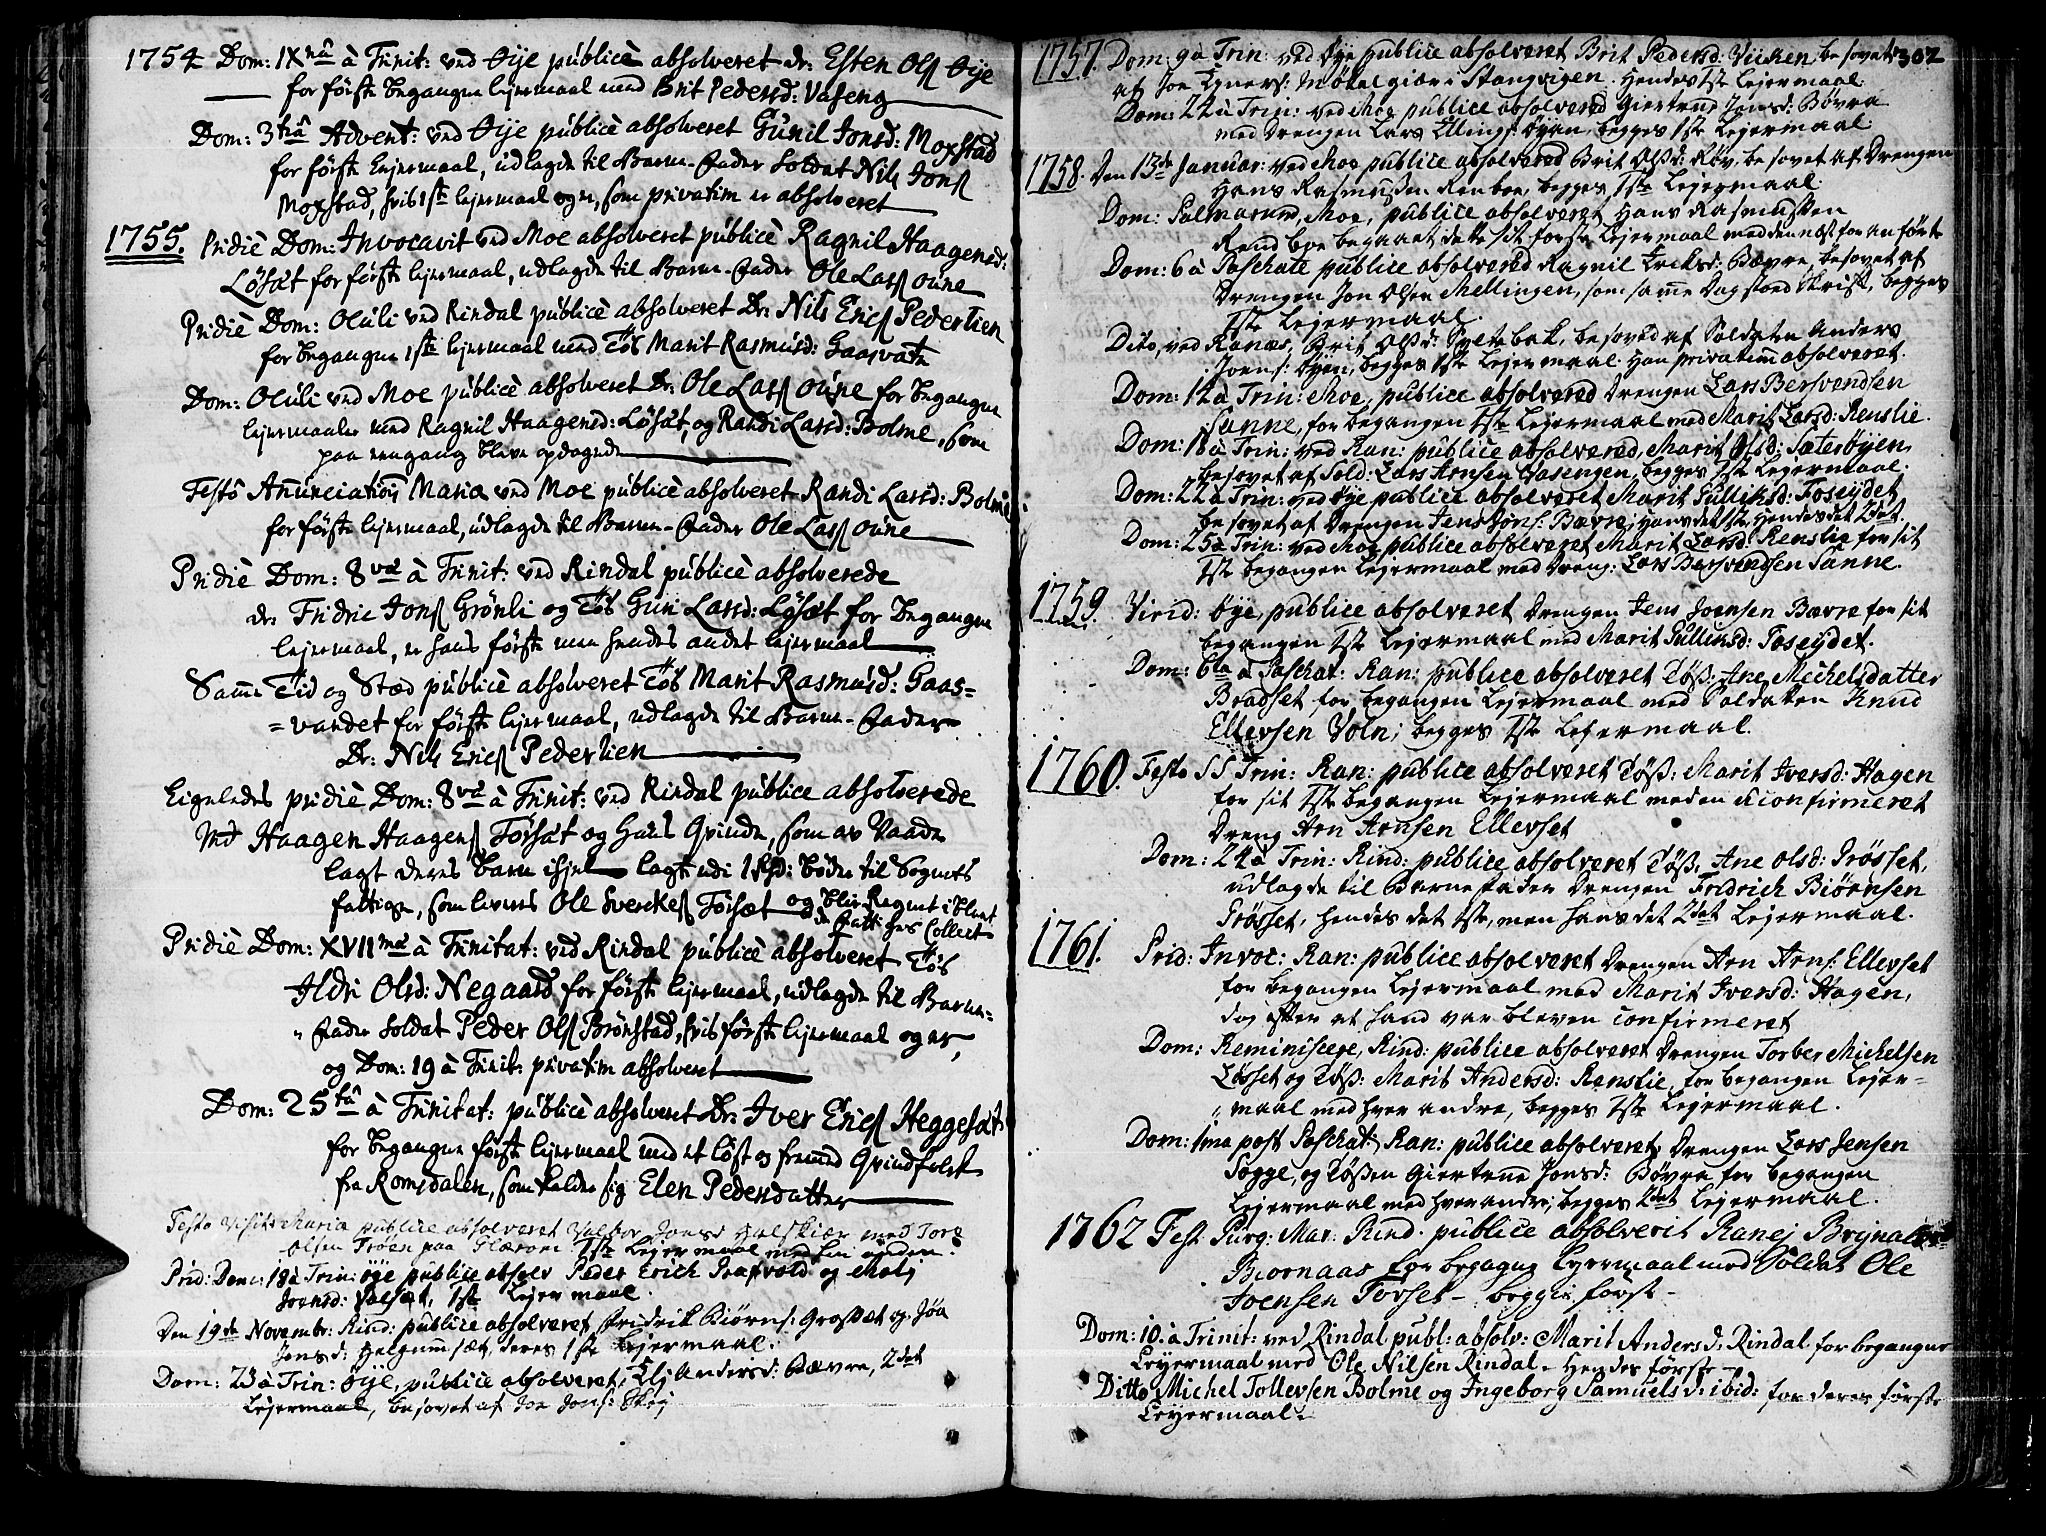 1754 Dom: IXnâ â Trinit: ved Øÿe publicè absolveret dr: Esten Olsß Øÿe
for förste begangne lejermaal med Brit Pedersd: Vaseng
Dom: 3tiâ Advent: ved Øÿe publicè absolveret Gunil Jonsd: Moxstad
for förste lejermaal, udlagde til Barne-Fader Soldat Nils Jonsß
Moxstad, hvis 1ste lejermaal og er, som privatim er absolveret
1755. Pridiè Dom: Invocavit ved Moe absolveret publicè Ragnil Haagensd:
Løsæt for förste lejermaal, udlagde til Barne-Fader Ole Larsß oune
Pridiè Dom: Oculi ved Rindal publicè absolveret Dr: Nils Ericsß Pederlien
for begangne 1ste lejermaal med Tös Marit Rasmusd: Gaasvatn
Dom: Oculi ved Moe publicè absolveret Dr: Ole Larsß oune for begangne
lejermaaler med Ragnil Haagensd: Løsæt, og Randi Larsd: Bolme, som
paa eengang bleve opdagede
Festô Anunciationis Maria ved Moe publicè absolveret Randi Larsd: Bolme
for förste lejermaal, udlagde til Barne-Fader Ole Larsß oune
Pridiè Dom: 8vâ â Trinit: ved Rindal publicè absolverede
dr: Fridric Jonsß Grönli og Tös Guri Larsd: Løsæt for begangne
lejermaal, er hans förste men hendes andet lejermaal
Samme Tid og Stæd publicè absolveret Tös Marit Rasmusd: Gaas=
=vandet for förste lejermaal, udlagde til Barne-Fader
Dr: Nils Ericsß Pederlien
Eigeledes pridiè Dom: 8vâ â Trinit: ved Rindal publice absolverede
Md Haagen Haagensß Torsæt og hans Qvinde, som av Vaade
lagt deres Barn ihjel lagt udi 1 Rsd: bøder til Sognets
fattige, som leveres Ole Sverkesß Torsæt og blir Regnet iblant
de Fattiges Collect
Pridiè Dom: XVIImâ â Trinitat: ved Rindal publicè absolveret Tös
Ildri Olsd: Negaard for förste lejermaal, udlagde til Barne=
=Fader Soldat Peder Olsß Brönstad, hvis förste lejermaal og er,
og Dom: 19 â Trinit: privatim absolveret
Dom: 25tâ â Trinitat: publicè absolveret Dr: Iver Ericsß Heggesæt
for begangne förste lejermaal med et löst og fremmed Qvindfolck
fra Romsdalen, som kalder sig Elen Pedersdatter
Festo Visits Maria publice absolveret Jonsd Halskiær med Tore
Olsen Trøen paa 1ste Lejermaal
Prid: Dom: 18 â Trin: øÿe publice absolv Peder Erich og Moli
Joensd: Valsæt, 1ste Lejermaal.
Den 19de Novembr: Rind: publice absolveret Fridrik Biörns: Grosset og Jøa
Jonsd: Helgumsæt, deres 1ste Lejermaal.
Dom: 23 â Trin: öÿe, publice absolveret, Elj Andersd: Bævre, 2det
Lejermaal, besovet af Joe Jons: Skej
302
1757. Dom 9 â Trin: ved Øye publice absolveret Brit Pedersd: Viichen, besovet
af Joe i Stangvigen. Hendes 1ste Lejermaal.
Dom: 22 â Trin: ved Moe publice absolvered Giertrud Jonsd: Bövra
med Drengen Lars Ellings: Øyen, begges 1ste Lejermaal.
1758. Den 13de Januar: ved Moe publice absolvered Brit Olsd: Röv, besovet af Drengen
Hans Rasmussen Renboe, begges 1ste Lejermaal.
Dom: Palmarum, Moe, publice absolveret Hans Rasmussen
Rendboe begaaet dette sit förste Lejermaal med den næst for anförte
Dom: 6 â Paschate publice absolvered Ragnil Ericksd: Bævre, besovet af
Drengen Jon Olsen Mellingen, som samme Dag stoed Skrift, begges
1ste Lejermaal.
Dito, ved Ranæs, Brit Olsd: Syltebak, besoved af Soldaten Anders
Joens: Øyen, begges 1ste Lejermaal. Han privatim absolveret.
Dom: 12 â Trin: Moe, publice absolvered Drengen Lars Bersvendsen
Sanne, for begangen 1ste Lejermaal med Marit Larsd: Renslie.
Dom: 18 â Trin: ved Ran: publice absolvered, Marit Olsd: Sæterøÿen,
besovet af Sold: Lars Arnsen Vasengen, begges 1ste Lejermaal.
Dom: 22 â Trin: ved øÿe publice absolveret Marit Gulliksd: Foseÿdet
besovet af Drengen Jens Jons: Bævre, Hans det 1ste, Hendes det 2det.
Dom: 25 â Trin: ved Moe publice absolveret Marit Larsd: Renslie for sit
1ste begangen Lejermaal med Dreng: Lars Bersvendsen Sanne.
1759. Virid: Øye, publice absolveret Drengen Jens Joensen Bævre for sit
begangen 1ste Lejermaal med Marit Gulliksd: Foseÿdet.
Dom: 6ta â Paschat: Ran: publice absolveret Töß: Ane Michelsdatter
Bradset for begangen Lejermaal med Soldaten Knud
Ellevsen Voln, begges 1ste Lejermaal.
1760. Festo SS Trin: Ran: publice absolveret Töß: Marit Iversd: Hagen
for sit 1ste begangen Lejermaal med en confirmeret
Dreng Arn Arnsen Ellevset
Dom: 24 â Trin: Rind: publice absolveret Töß: Ane Olsd: PröSset,
udlagde til Barnefader Drengen Fridrich Biörnsen
Pröset, hendes det 1ste, men hans det 2det Lejermaal.
1761. Prid: Invoc: Ran: publice absolveret Drengen Arn Arns: Ellevset
for begangen Lejermaal med Marit Iversd: Hagen,
dog efter at hand var bleven confirmeret
Dom: Reminiscere, Rind: publice absolveret Drengen Torber Michelsen
Løsset og Töß: Marit Andersd: Renslie, for begangen Lejer=
=maal med hver andre, begges 1ste Lejermaal.
Dom: 1ma post Paschat, Ran: publice absolveret Drengen Lars Jensen
Sogge, og Tößen Giertrue Jonsd: Bövra for begangen
Lejermaal med hverandre, begges 2det Lejermaal.
1762 Fest Purg: Mar: Rind. publice absolverit Ranej
Biornaas for begagne Lyermaal med Soldat Ole
Joensen Torset - beggis först -
Dom: 10. â Trinit: ved Rindal publ: absolv: Marit Andersd. Rindal for begangne
Leyermaal med Ole Nilsen Rindal - Hendes förste -
Ditto Michel Tollevsen Bolme og Ingeborg Samuelsd: ibid: for deres förste
Leyermaal.